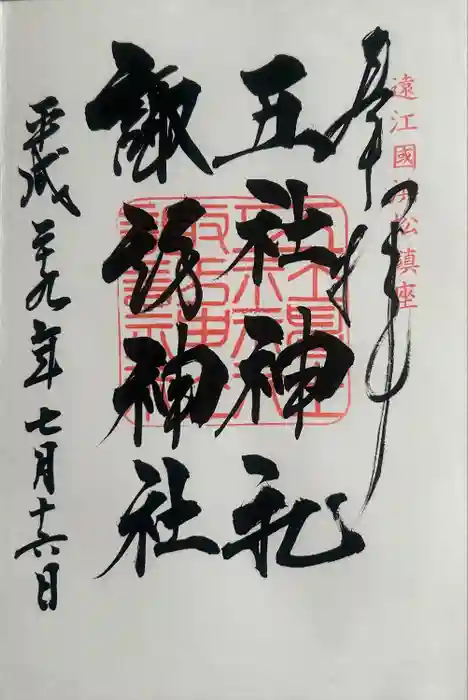 遠江國濱松鎮座
奉拝
五社神社
諏訪神社
平成二十九年七月十六日